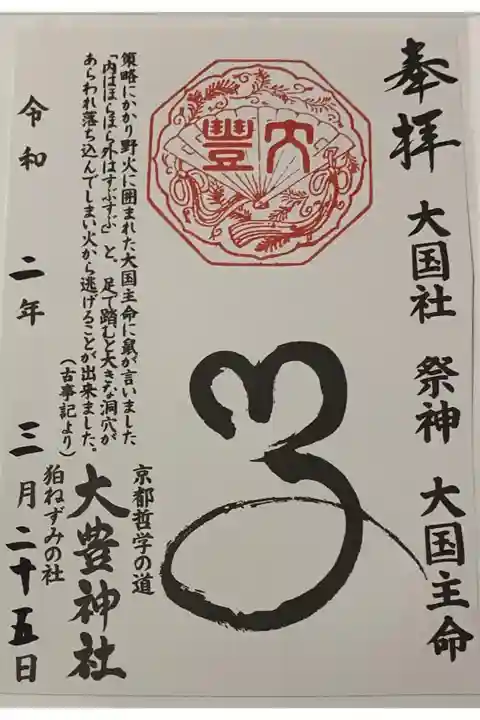 奉拝 大国社 祭神 大国主命
大豐
策略にかかり野火に囲まれた大国主命に鼠が言いました
「内はほらほら外はすぶすぶ」と、足で踏むと大きな洞穴が
あらわれ落ち込んでしまい火から逃げることが出来ました。
(古事記より)
京都哲学の道
大豊神社
狛ねずみの社
令和 二年 三月二十五日